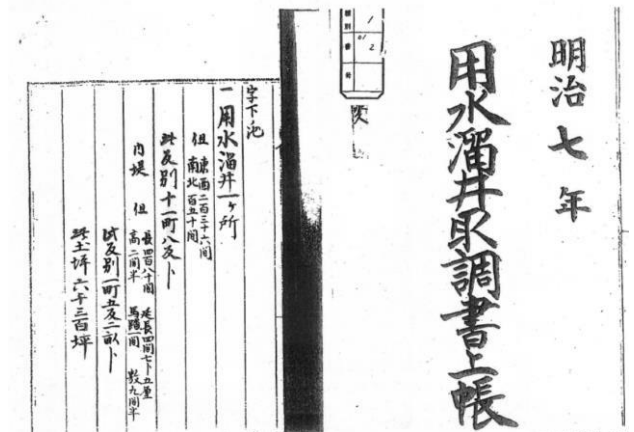 明治七年
用水溜井取調書上帳
1
2
字下沱
一用水溜井一ヶ所
但 東西二百三十六間
南北百五十間
此反別十一町八反卜
内堤 但 長四百八十間 延長四間七卜五厘
高二間半 馬踏一間 敷九間半
此反別一町五反二畝卜
此土坪六千三百坪